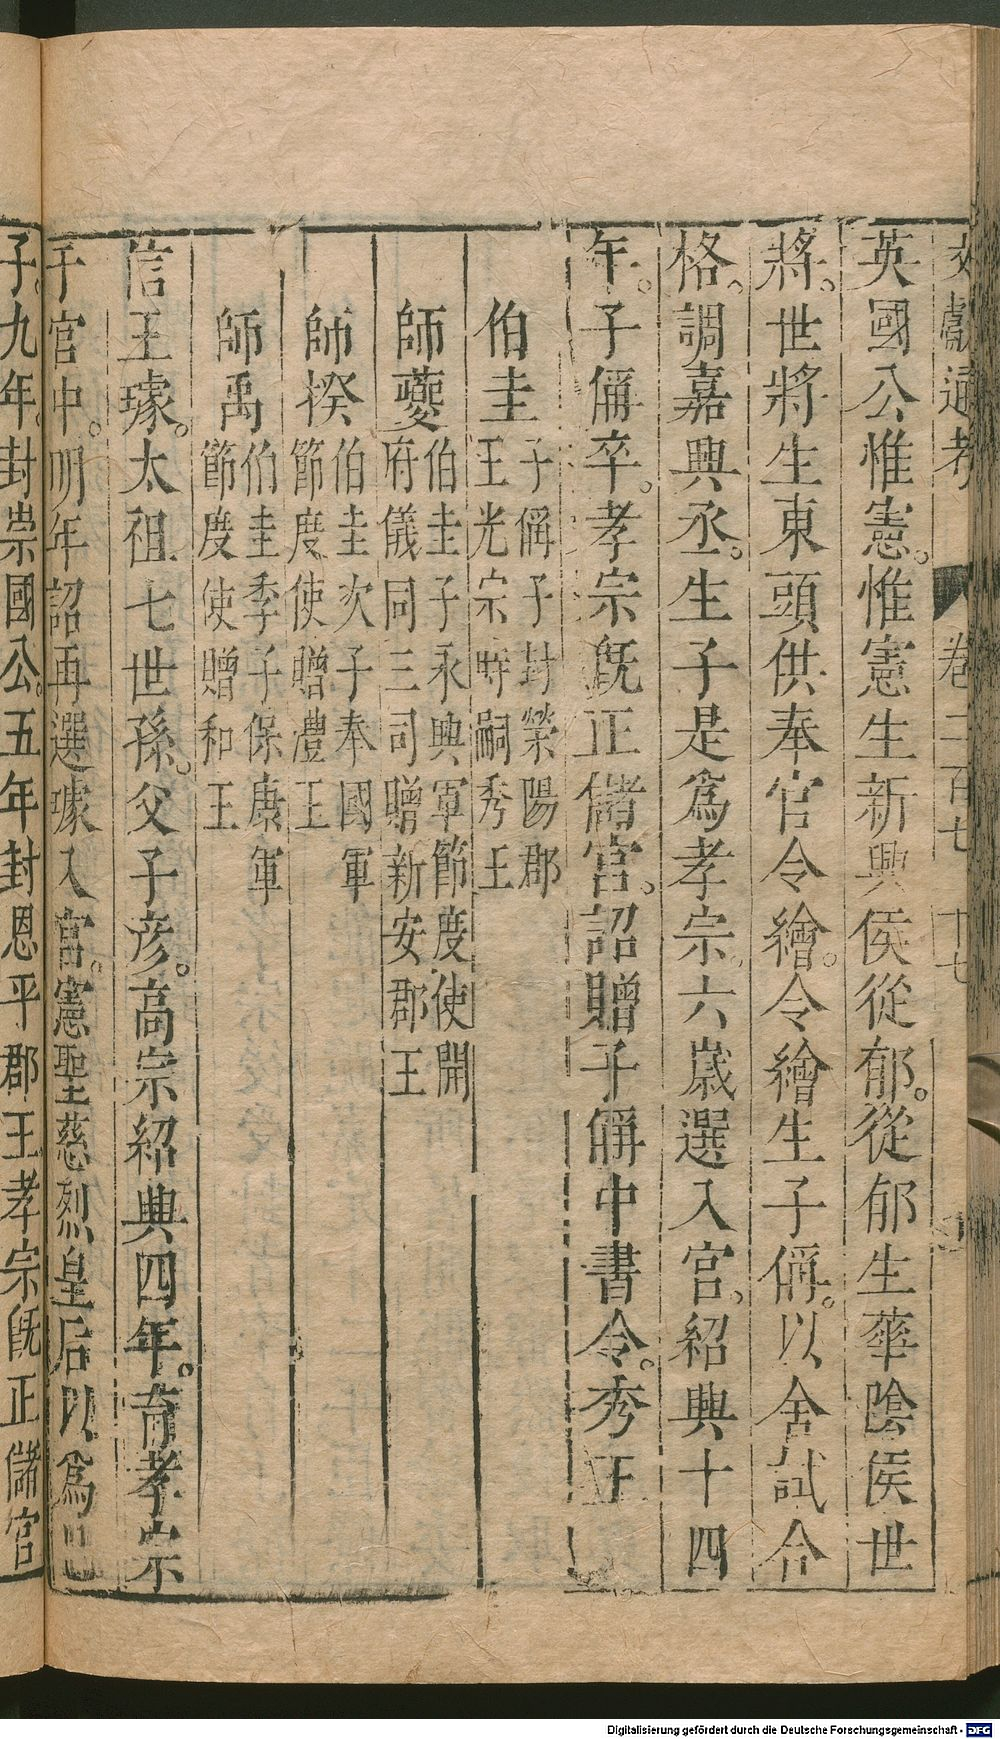 文獻通考 卷二百七十七
英國公惟憲。惟憲生新興侯從郁。從郁生華陰侯世
將。世將生東頭供奉官令繪。令繪生子偁。以舍試合
格。調嘉興丞。生子是爲孝宗。六歲選入宮。紹興十四
年。子偁卒。孝宗旣正儲宮。詔贈子偁中書令。秀王
伯圭 子偁子封滎陽郡
王光宗時嗣秀王
師夔 伯圭子永興軍節度使開
府儀同三司贈新安郡王
師揆 伯圭次子奉國軍
節度使贈澧王
師禹 伯圭季子保康軍
節度使贈和王
信王璩。太祖七世孫。父子彥。高宗紹興四年。育孝宗
于宮中。明年詔再選璩入宮。憲聖慈烈皇后以爲己
子。九年。封崇國公。五年封恩平郡王孝宗旣正儲宮
Digitalisierung gefördert durch die Deutsche Forschungsgemeinschaft - DFG